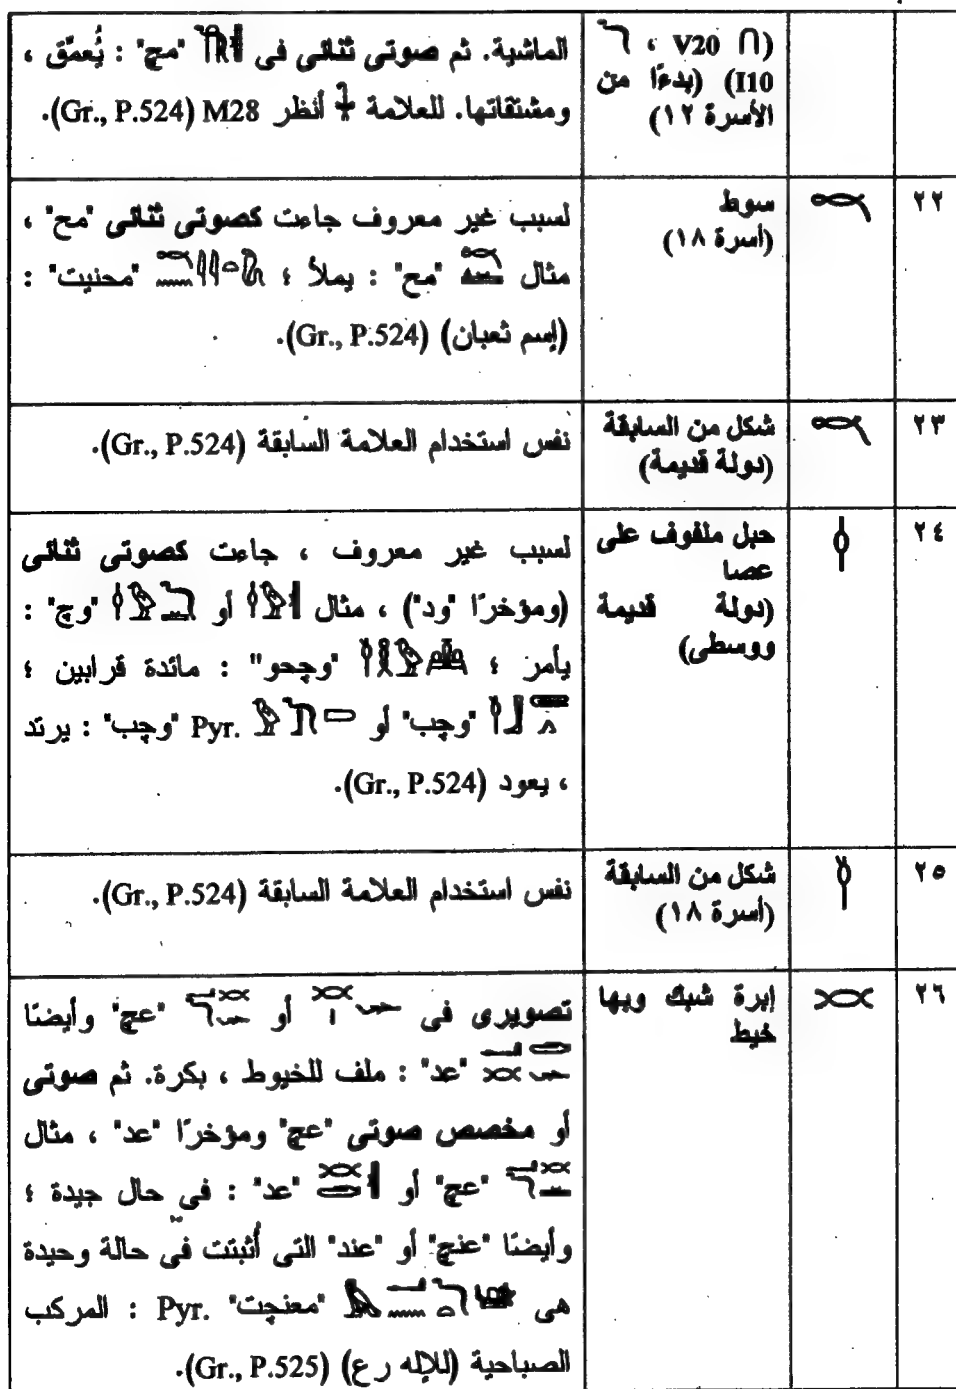 (V20 ∩ ، I10) (بدءًا من الأسرة ١٢)
الماشية. ثم صوتى ثنائى فى "مچ" : يُعمّق ،
ومشتقاتها. للعلامة أنظر M28 (Gr., P.524).
٢٢
سوط
(أسرة ١٨)
لسبب غير معروف جاءت كصوتى ثنائى "مح" ،
مثال "مح" : يملأ ؛ "محنيت" :
(إسم ثعبان) (Gr., P.524).
٢٣
شكل من السابقة
(دولة قديمة)
نفس استخدام العلامة السابقة (Gr., P.524).
٢٤
حبل ملفوف على
عصا
(دولة قديمة
ووسطى)
لسبب غير معروف ، جاءت كصوتى ثنائى
(ومؤخرًا "ود") ، مثال أو "وچ" :
يأمر ؛ "وچحو" : مائدة قرابين ؛
"وچب" أو Pyr. "وچب" : يرتد
، يعود (Gr., P.524).
٢٥
شكل من السابقة
(أسرة ١٨)
نفس استخدام العلامة السابقة (Gr., P.524).
٢٦
إبرة شبك وبها
خيط
تصويرى فى أو "عچ" وأيضًا
"عد" : ملف للخيوط ، بكرة. ثم صوتى
أو مخصص صوتى "عچ" ومؤخرًا "عد" ، مثال
"عچ" أو "عد" : فى حال جيدة ؛
وأيضًا "عنچ" أو "عند" التى أُثبتت فى حالة وحيدة
هى "معنچت" Pyr. : المركب
الصباحية (للإله رع) (Gr., P.525).